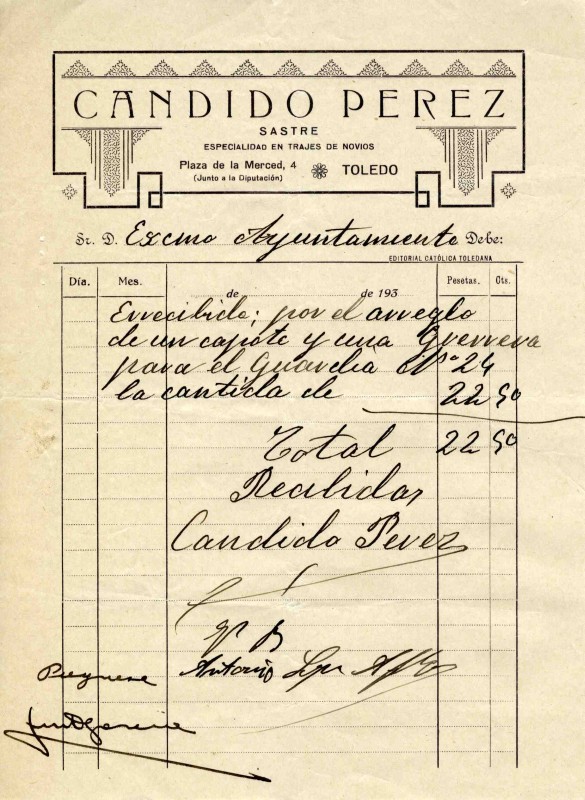 CANDIDO PEREZ
SASTRE
ESPECIALIDAD EN TRAJES DE NOVIOS
Plaza de la Merced, 4
(Junto a la Diputación)
TOLEDO
Sr. D. Excmo Ayuntamiento Debe:
EDITORIAL CATÓLICA TOLEDANA
Día. Mes. Pesetas. Cts.
de de 193
Errecibido; por el arreglo
de un capote y una Guerrera
para el Guardia Nº 24
la cantida de 22 50
Total 22 50
Recibidas
Candido Perez
Vº Bº
Antonio